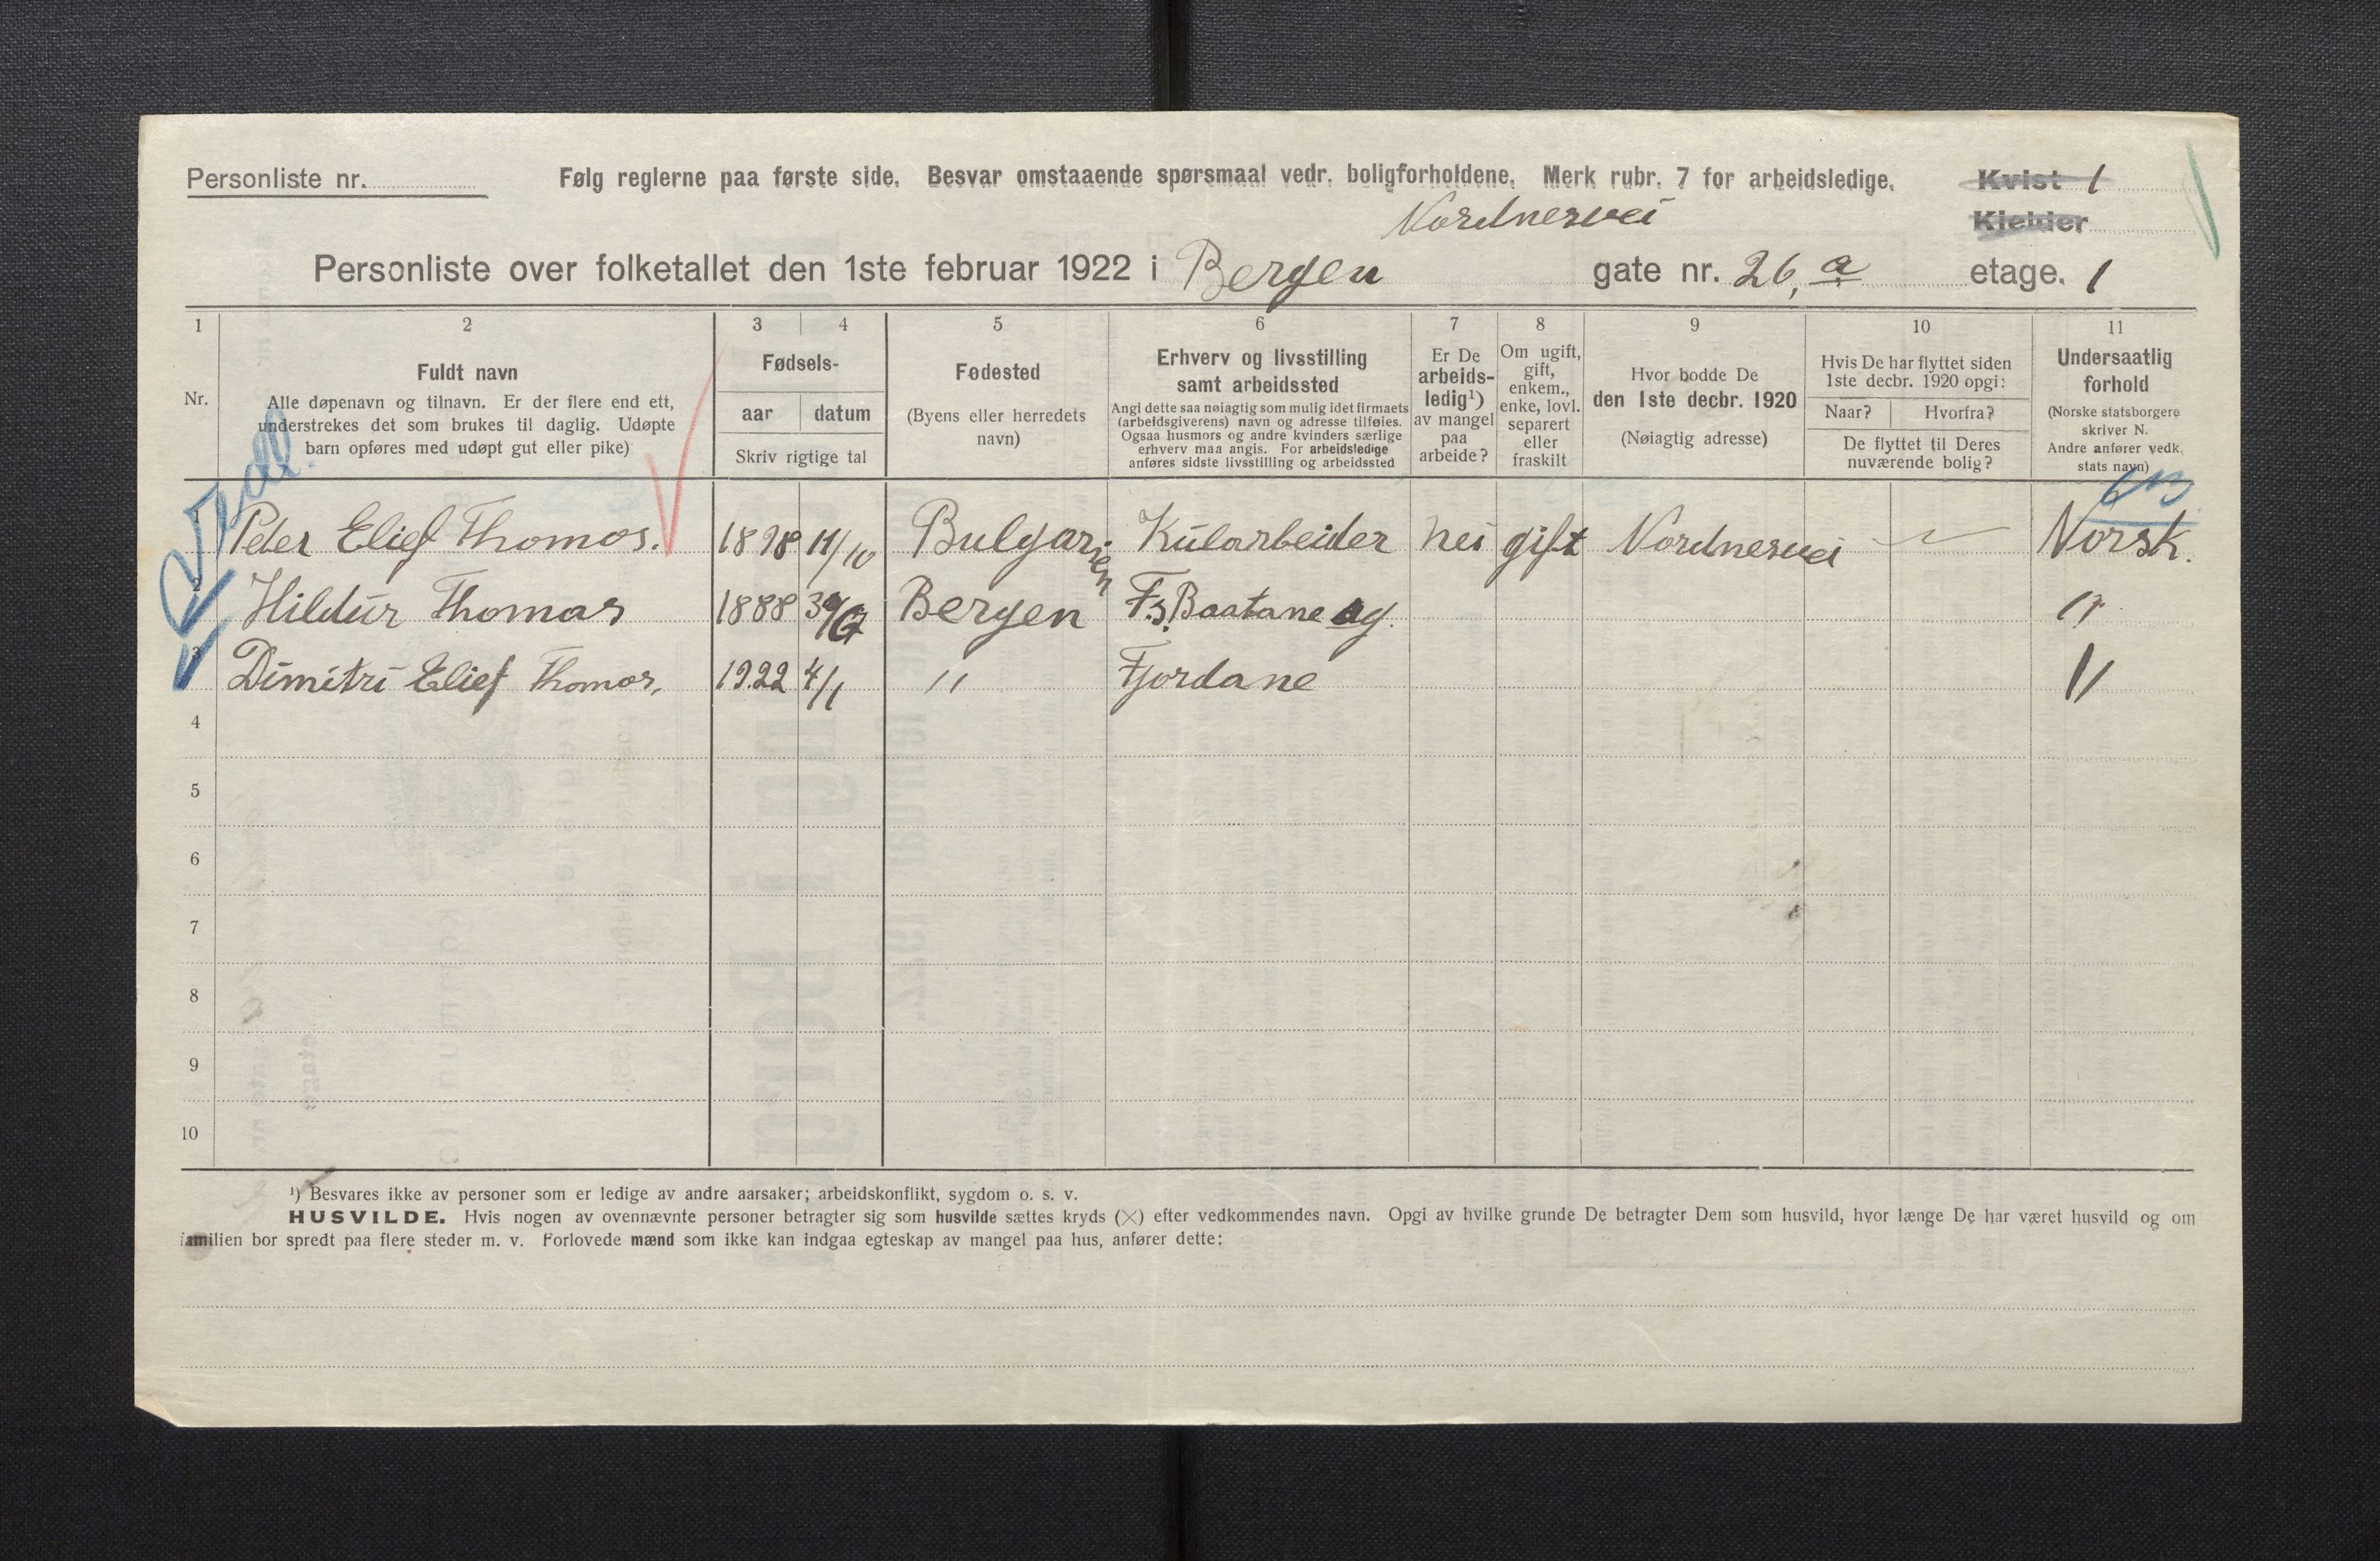 Personliste nr. Følg reglerne paa første side. Besvar omstaaende spørsmaal vedr. boligforholdene. Merk rubr. 7 for arbeidsledige. Kvist 1
Nordnesvei Kjelder
Personliste over folketallet den 1ste februar 1922 i Bergen gate nr. 26, a etage. 1
1 2 3 4 5 6 7 8 9 10 11
Nr.
Fuldt navn
Alle døpenavn og tilnavn. Er der flere end ett,
understrekes det som brukes til daglig. Udøpte
barn opføres med udøpt gut eller pike)
Fødsels-
aar datum
Skriv rigtige tal
Fødested
(Byens eller herredets
navn)
Erhverv og livsstilling
samt arbeidssted
Angi dette saa nøiagtig som mulig idet firmaets
(arbeidsgiverens) navn og adresse tilføies.
Ogsaa husmors og andre kvinders særlige
erhverv maa angis. For arbeidsledige
anføres sidste livsstilling og arbeidssted
Er De
arbeids-
ledig¹)
av mangel
paa
arbeide?
Om ugift,
gift,
enkem.,
enke, lovl.
separert
eller
fraskilt
Hvor bodde De
den 1ste decbr. 1920
(Nøiagtig adresse)
Hvis De har flyttet siden
1ste decbr. 1920 opgi:
Naar? Hvorfra?
De flyttet til Deres
nuværende bolig?
Undersaatlig
forhold
(Norske statsborgere
skriver N.
Andre anfører vedk.
stats navn)
1 Peter Elief Thomos. 1898 11/10 Bulgarien Kularbeider nei gift Nordnesvei Norsk.
2 Hildur Thomas 1888 Bergen Fs. Baatane og "
3 Dimitri Elief Thomos, 1922 4/1 " Fjordane "
4
5
6
7
8
9
10
¹) Besvares ikke av personer som er ledige av andre aarsaker; arbeidskonflikt, sygdom o. s. v.
HUSVILDE. Hvis nogen av ovennævnte personer betragter sig som husvilde sættes kryds (×) efter vedkommendes navn. Opgi av hvilke grunde De betragter Dem som husvild, hvor længe De har været husvild og om
familien bor spredt paa flere steder m. v. Forlovede mænd som ikke kan indgaa egteskap av mangel paa hus, anfører dette: